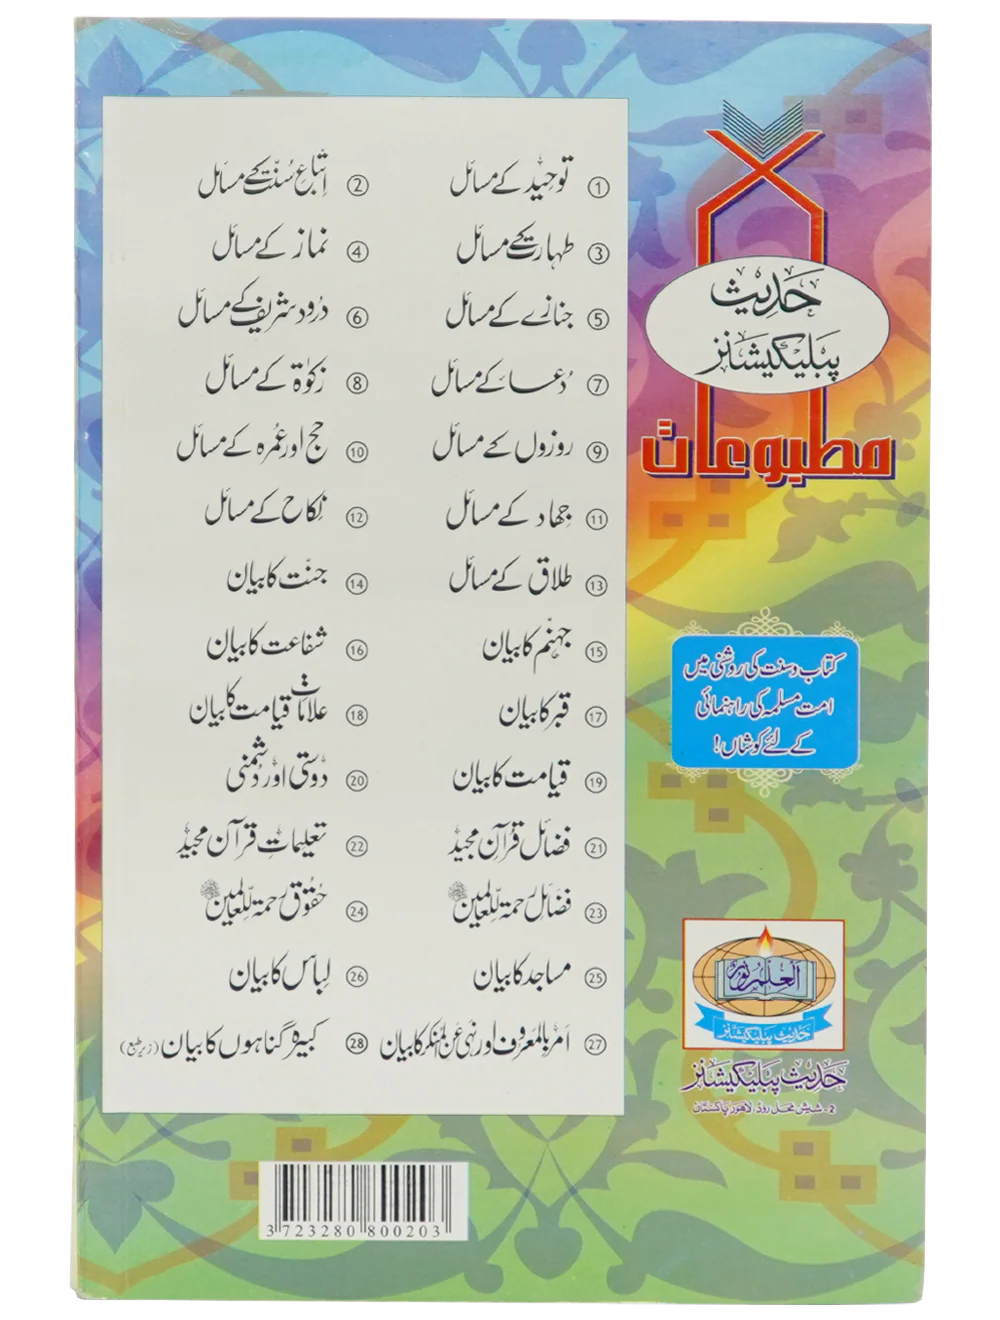 حدیث
پبلیکیشنز
مطبوعات
① توحید کے مسائل
② اتباعِ سُنّت کے مسائل
③ طہارت کے مسائل
④ نماز کے مسائل
⑤ جنازے کے مسائل
⑥ درود شریف کے مسائل
⑦ دُعاء کے مسائل
⑧ زکوٰۃ کے مسائل
⑨ روزوں کے مسائل
⑩ حج اور عُمرہ کے مسائل
⑪ جہاد کے مسائل
⑫ نکاح کے مسائل
⑬ طلاق کے مسائل
⑭ جنّت کا بیان
⑮ جہنّم کا بیان
⑯ شفاعت کا بیان
⑰ قبر کا بیان
⑱ علاماتِ قیامت کا بیان
⑲ قیامت کا بیان
⑳ دوستی اور دُشمنی
㉑ فضائل قُرآن مجید
㉒ تعلیماتِ قرآن مجید
㉓ فضائل رحمۃ لّلعالمین ﷺ
㉔ حقُوق رحمۃ لّلعالمین ﷺ
㉕ مساجد کا بیان
㉖ لباس کا بیان
㉗ امر بالمعروف اور نہی عن المنکر کا بیان
㉘ کبیرہ گناہوں کا بیان (زیر طبع)
کتاب و سنت کی روشنی میں
امت مسلمہ کی راہنمائی
کے لئے کوشاں!
العلم نور
حدیث پبلیکیشنز
حدیث پبلیکیشنز
2- شیش محل روڈ، لاہور پاکستان
3 723280 800203